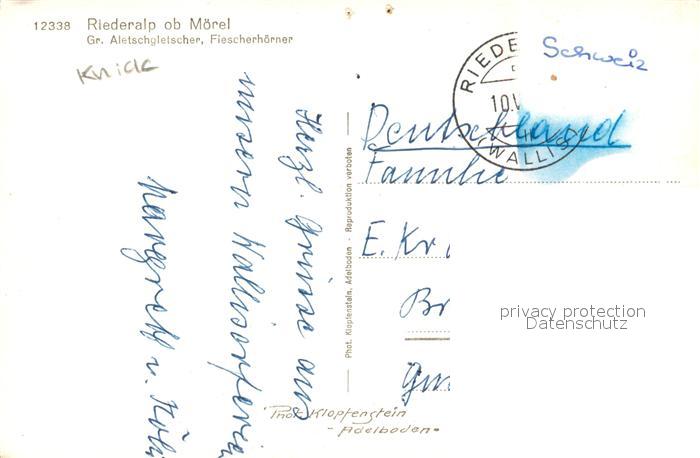 12338 Riederalp ob Mörel
Gr. Aletschgletscher, Fiescherhörner
Knick
Herzl. Grüsse aus
unsern Walliserferien
Margreth u.
Phot. Klopfenstein, Adelboden - Reproduktion verboten
RIEDE
10.V
WALLIS
Schweiz
Deutschland
Familie
E. Kr
Br
privacy protection
Datenschutz
Phot Klopfenstein
- Adelboden -